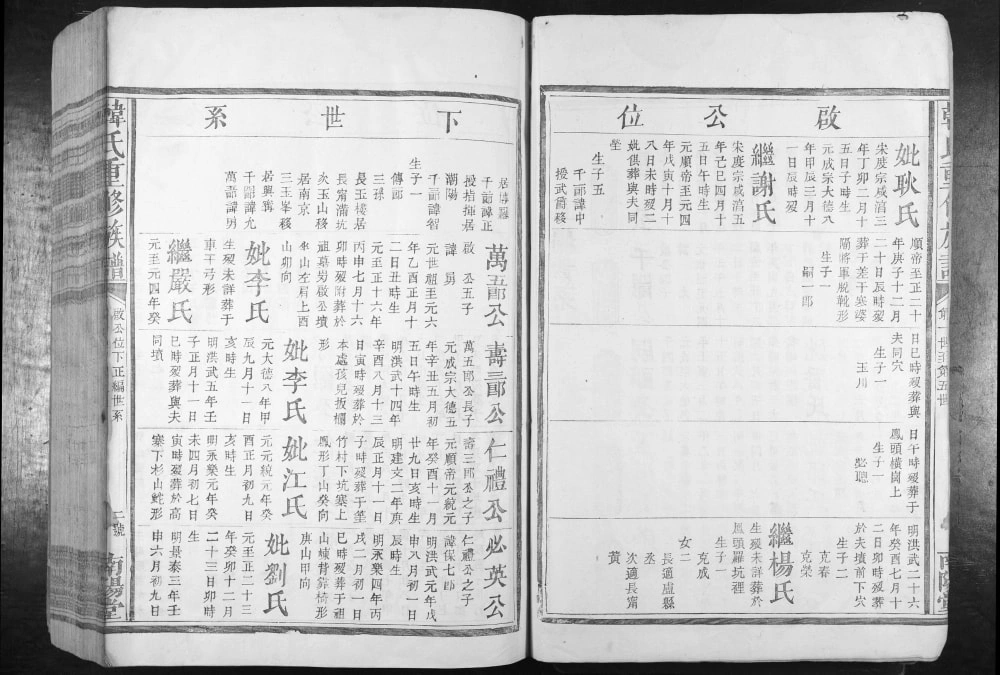 啟公位
妣耿氏
宋度宗咸淳三
年丁卯二月十
五日子時生
元成宗大德八
年甲辰三月十
一日辰時歿
繼謝氏
宋度宗咸淳五
年己巳四月十
五日午時生
元順帝至元四
年戊寅十月十
八日未時歿二
妣俱葬與夫同
塋
生子五
千一郎諱中
授武爵移
順帝至正二十
年庚子十二月
二十日辰時歿
葬于差干寨婆
隔將軍脫靴形
生子一
嗣一郎
日巳時歿葬與
夫同穴
生子一
玉川
日午時歿葬于
鳳頭橫崗上
生子一
必聰
明洪武二十六
年癸酉七月十
二日卯時歿葬
於夫墳前下穴
生子二
克春
克榮
繼楊氏
生歿未詳葬於
鳳頭羅坑裡
生子一
克成
女二
長適盧縣
丞
次適長甯
黃
下世系
居博羅
千二郎諱正
授指揮居
潮陽
千三郎諱智
生子一
傳郎
三採
長玉樓居
長甯滿坑
次玉山移
居南京
三玉峯移
居興甯
千四郎諱允
萬五郎諱勇
萬五郎公
啟公五子
諱勇
元世祖至元六
年乙酉正月十
二日丑時生
元至正十六年
丙申七月十六
卯時歿附葬於
祖墓岃啟公墳
坐山左肩上酉
山卯向
妣李氏
生歿未詳葬于
車干弓形
繼嚴氏
元至元四年癸
壽三郎公
萬五郎公長子
元成宗大德五
年辛丑五月初
五日午時生
明洪武十四年
辛酉八月十三
日寅時歿葬於
本處孩兒扳欄
形
妣李氏
元大德八年甲
辰九月十一日
亥時生
明洪武五年壬
子正月十一日
巳時歿葬與夫
同墳
仁禮公
壽三郎公之子
元順帝元統元
年癸酉十一月
廿九日亥時生
明建文二年庚
辰正月十一日
子時歿葬于篁
竹村下坑寨上
鳳形丁山癸向
妣江氏
元元統元年癸
酉正月初九日
亥時生
明永樂元年癸
未四月初七日
寅時歿葬於高
寨下杉山蛇形
必英公
仁禮公之子
諱保七郎
明洪武元年戊
申八月初一日
辰時生
明永樂四年丙
戌二月初一日
巳時歿葬于祖
山棟背靠椅形
庚山甲向
妣劉氏
元至正二十三
年癸卯十二月
二十三日卯時
生
明景泰三年壬
申六月初九日
韓氏重修族譜
啟公位下正編世系
二號
南陽堂